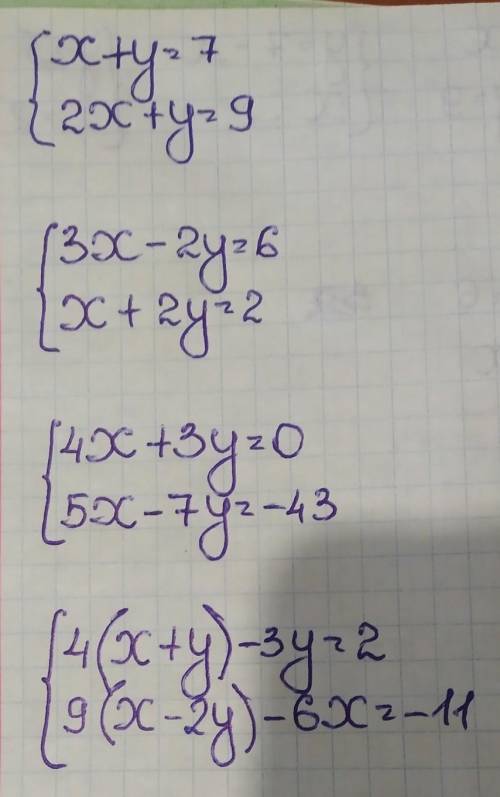 x+y=7
2x+y=9
3x-2y=6
x+2y=2
4x+3y=0
5x-7y=-43
4(x+y)-3y=2
9(x-2y)-6x=-11